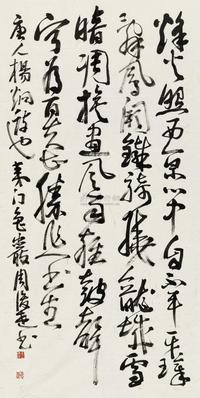 烽火照西京心中自不平牙璋
辞凤阙铁骑绕龙城雪
暗凋旗画风多杂鼓声
宁为百夫长胜作一书生
唐人杨炯诗也
周俊杰书